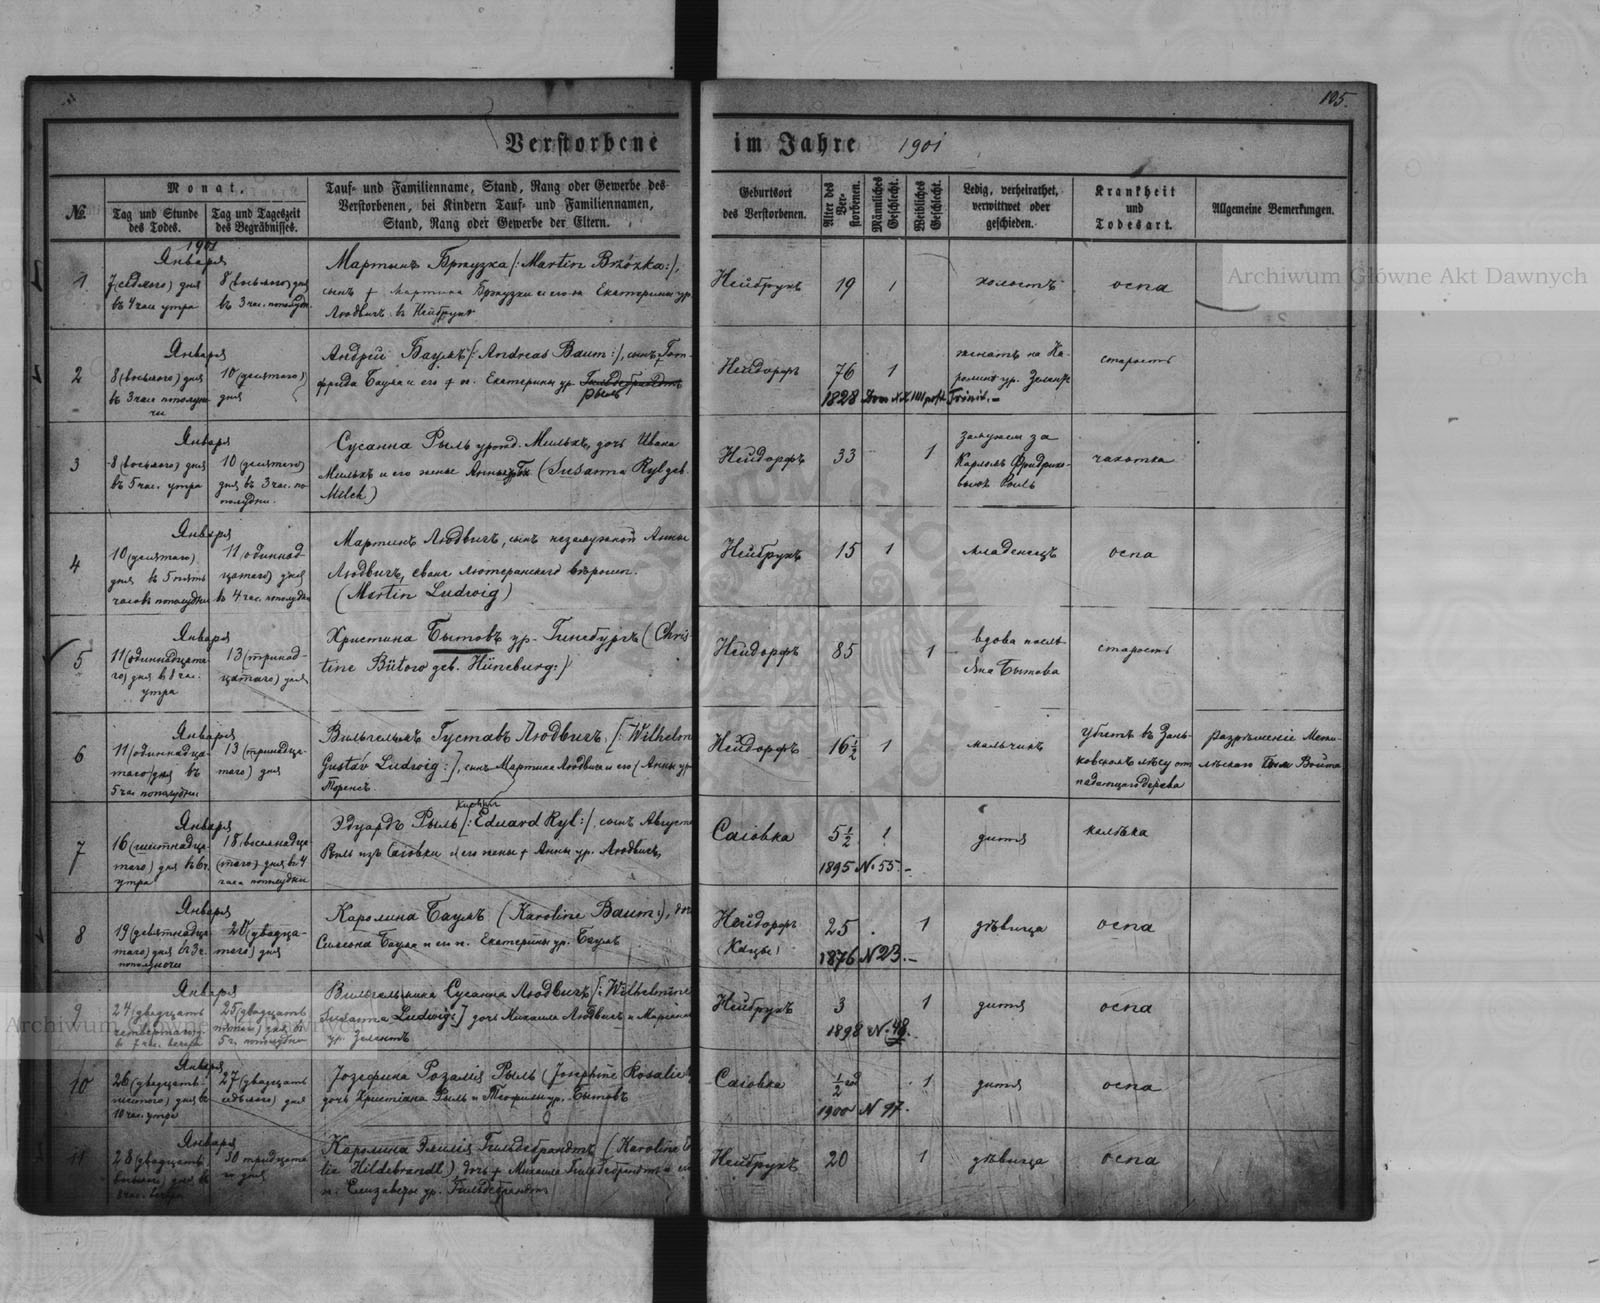 105.
Verstorbene im Jahre 1901
№
Monat.
Tag und Stunde des Todes.
Tag und Tageszeit des Begräbnisses.
Tauf- und Familienname, Stand, Rang oder Gewerbe des
Verstorbenen, bei Kindern Tauf- und Familiennamen,
Stand, Rang oder Gewerbe der Eltern.
Geburtsort
des Verstorbenen.
Alter des Verstorbenen.
Männliches Geschlecht.
Weibliches Geschlecht.
Ledig, verheirathet,
verwittwet oder
geschieden.
Krankheit
und
Todesart.
Allgemeine Bemerkungen.
1901
Января
1
7 (седмого) дня
въ 4 часа утра
8 (восьмого) дня
въ 3 час. пополудни
Мартынъ Бржузка /: Martin Brzózka :/,
сынъ + Мартина Бржузки и его ж. Екатерины ур.
Людвигъ въ Нейбрухѣ
Нейбрухъ
19
1
холостъ
оспа
Января
2
8 (восьмого) дня
въ 3 часа пополуночи
10 (десятого)
дня
Андрей Баумъ /: Andreas Baum :/, сынъ Готфрида Баума и его + ж. Екатерины ур. Гильдебрандтъ
Рыль
Нейдорфъ
76
1
1828 Dom XXIII post Trinit. –
старость
Января
3
8 (восьмого) дня
въ 5 час. утра
10 (десятого)
дня въ 3 час. пополудни.
Сусанна Рыль урожд. Мильхъ, дочь Ивана
Мильхъ и его жены Анны (Susanna Ryl geb.
Milch)
Нейдорфъ
33
1
замужем за
Карломъ Фридриховымъ Рыль
чахотка
Января
4
10 (десятого)
дня въ 5 пять
часовъ пополудни
11 (одиннадцатого) дня
въ 4 час. пополудни
Мартинъ Людвигъ, сынъ незамужной Анны
Людвигъ, еванг. лютеранского вѣроисп.
(Martin Ludwig)
Нейбрухъ
15
1
младенецъ
оспа
Января
5
11 (одиннадцатого) дня в 8 час.
утра
13 (тринадцатого) дня
Христина Бытовъ ур. Гинебургъ (Christine Bütow geb. Hüneburg :/
Нейдорфъ
85
1
вдова послѣ
Яна Бытова
старость
Января
6
11 (одиннадцатого) дня въ
5 час. пополудни
13 (тринадцатого) дня
Вильгельмъ Густавъ Людвигъ, [: Wilhelm
Gustav Ludwig :], сынъ Мартина Людвига и его (Анны ур.
Торенсъ.
Нейдорфъ
16 1/2
1
мальчикъ
убитъ въ Заньковскомъ лѣсу от
падающаго дерева
разрѣшеніе
Войта
Января
7
16 (шестнадцатого) дня въ 6 ч.
утра
18 (восемнадцатого) дня въ 4
часа пополудни
Эдуардъ Рыль /: Eduard Ryl :/, сынъ Августа
Рыль изъ Саговки и его жены + Анны ур. Людвигъ,
Саговка
5 1/2
1
1895 N. 55. –
дитя
калѣка
Января
8
19 (девятнадцатого) дня в 3 ч.
пополуночи
20 (двадцатого) дня
Каролина Баумъ (Karoline Baum :), дочь
Симеона Баума и его ж. Екатерины ур. Баумъ
Нейдорфъ
25
1
1876 N 23. –
дѣвица
оспа
Января
9
24 (двадцать
четвертого) д.
въ 7 час. вечера
25 (двадцать
пятого) дня въ
5 ч. пополудни
Вильгельмина Сусанна Людвигъ [: Wilhelmine
Susanna Ludwig :] дочь Михаила Людвигъ и Маріанны
ур. Зелентъ
Нейбрухъ
3
1
1898 N. 48.
дитя
оспа
Января
10
26 (двадцать
шестого) дня въ
10 час. утра
27 (двадцать
седьмого) дня
Јозефина Розалія Рыль (Josephine Rosalie
дочь Христіана Рыль и Теофили ур. Бытовъ
Саговка
1/2 год
1
1900 N 97.
дитя
оспа
Января
11
28 (двадцать
восьмого) дня въ
8 час. вечера
30 тридцатого дня
Каролина Эмилія Гильдебрандтъ (Karoline Emilie Hildebrandt) дочь + Михаила Гильдебрандтъ и его
ж. Елизаветы ур. Гильдебрандтъ
Нейбрухъ
20
1
дѣвица
оспа
Archiwum Główne Akt Dawnych
Archiwum Główne Akt Dawnych